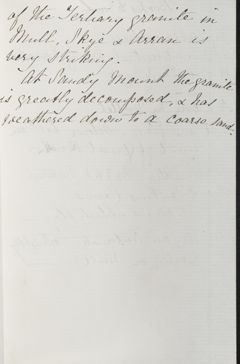 of the Tertiary granite in
Mull, Skye & Arran is
very striking.
At Sandy Mount the granite
is greatly decomposed, & has
weathered down to a coarse sand.